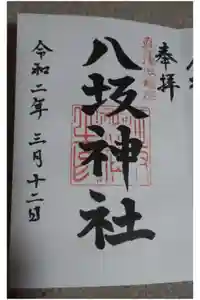 奉拝
八坂神社
令和二年三月十二日